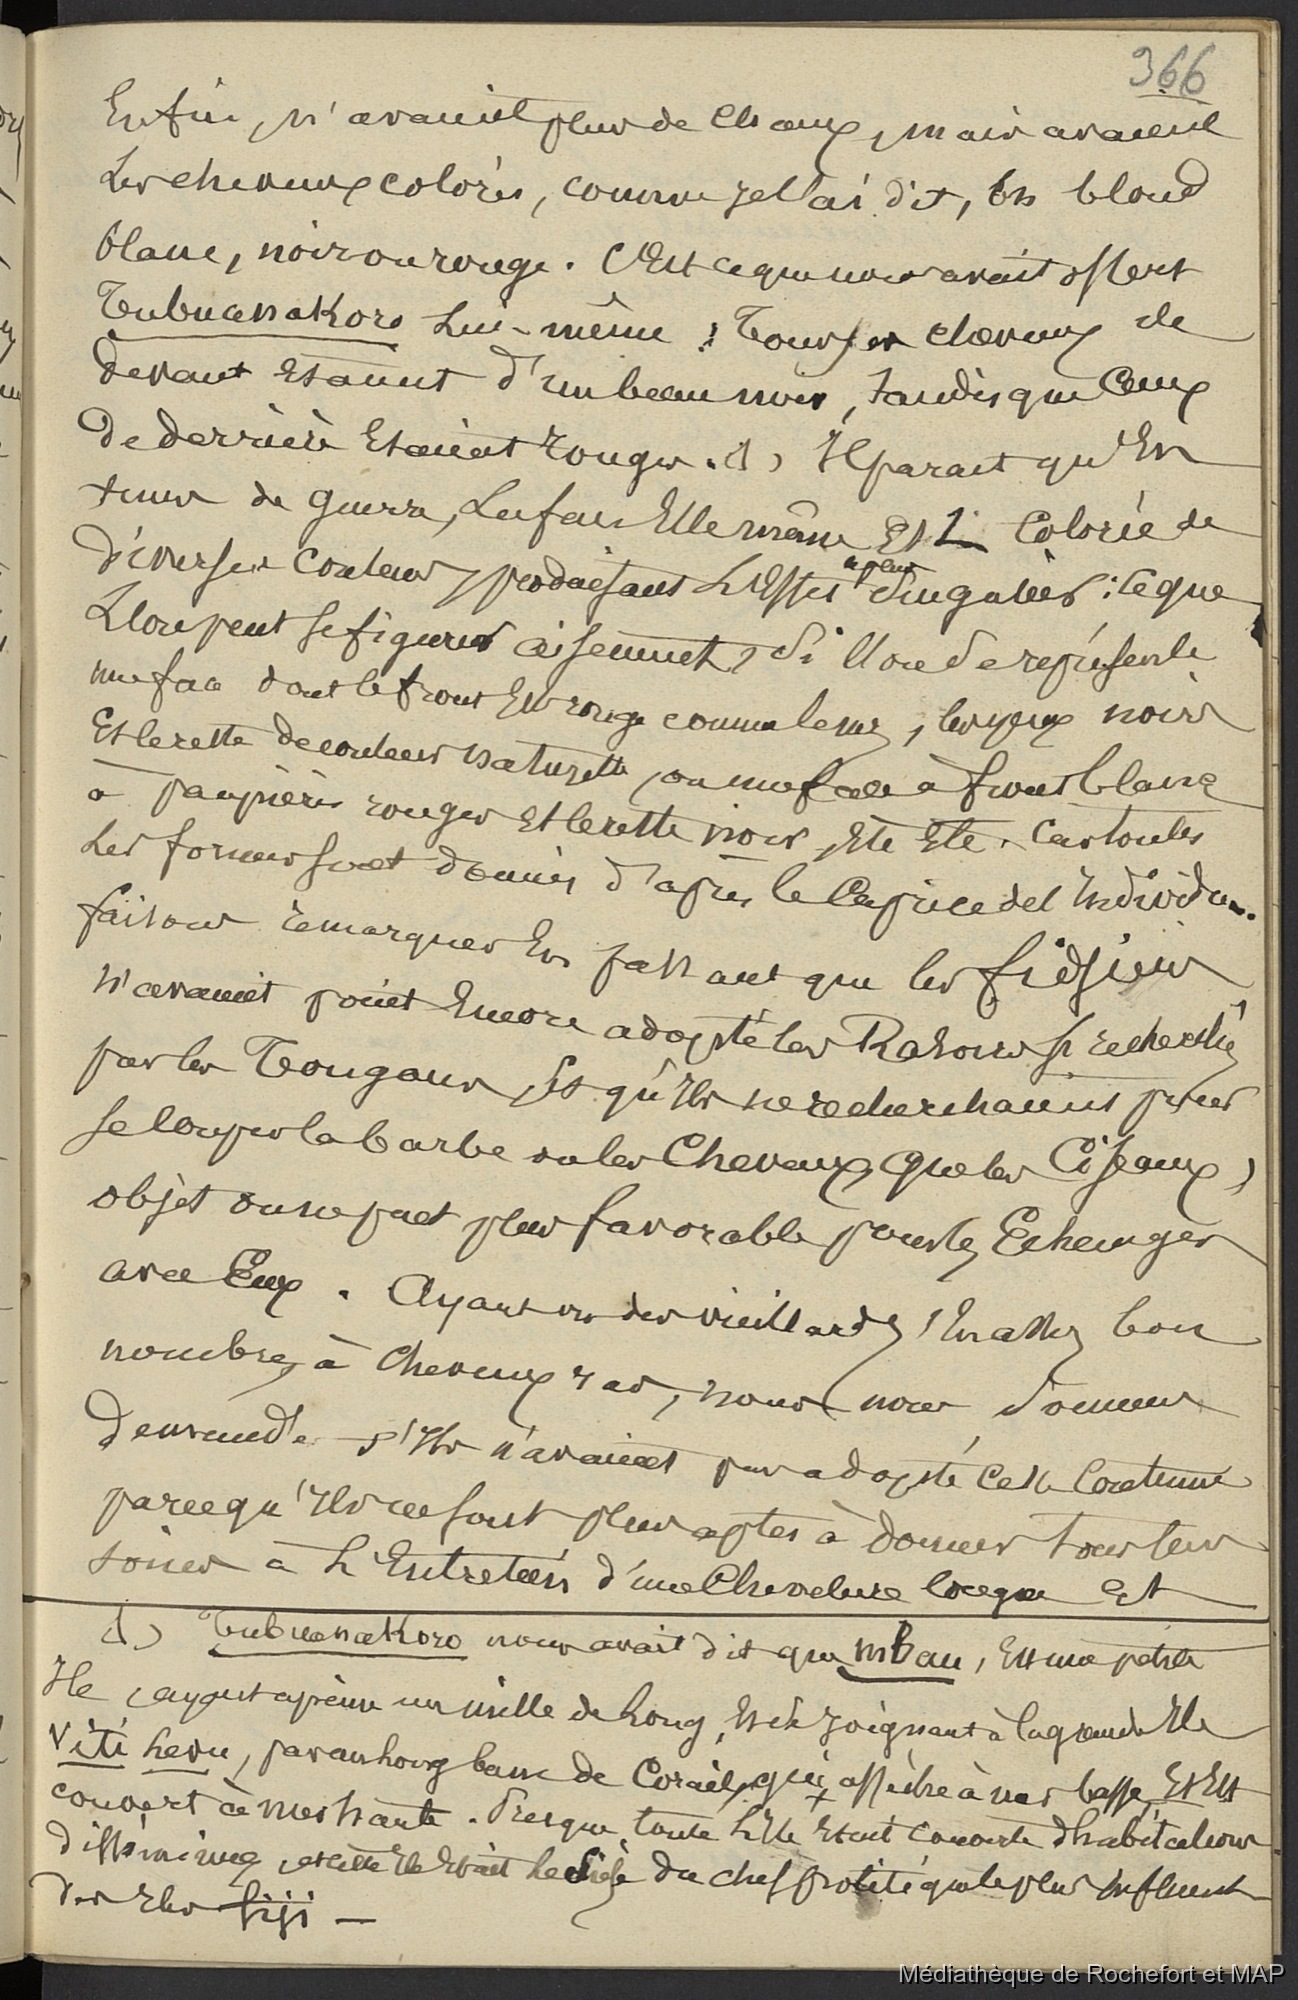 366
Enfin, n'avaient plus de chaux, mais avaient
Les cheveux colorés, comme je l'ai dit, En blond
blanc, noir ou rouge. C'Est ce que nous avait offert
Tubuanakoro Lui-même : Tous ses cheveux de
devant Etaient d'un beau noir, tandis que Ceux
De derrière Etaient rouges. (1) Il parait qu'En
temps de guerre, La face Elle même Est Colorée de
diverses Couleurs, produisant L'Effet le plus Singulier : Ce que
L'on peut se figurer aisemment, Si l'on se représente
une face dont le front Est rouge comme le nez, les yeux noirs
Et le reste de couleur naturelle, ou une face à front blanc
à paupières rouges Et le reste noir, Etc Etc. Car toutes
Les formes sont données d'après le Caprice de l'individu.
faisons remarquer En passant que les fidjiens
n'avaient point Encore adopté les Rasoirs si recherchés
par les Tongans, Et qu'Ils ne recherchaient pour
se couper la barbe ou les Cheveux, que les Ciseaux,
objet on ne peut plus favorable pour les Echanges
avec Eux. Ayant vu des vieillards, En assez bon
nombre, à Cheveux ras, nous nous sommes
demandé s'Ils n'avaient pas adopté Cette Coutume
parcequ'Ils ne sont plus aptes à donner tous leurs
soins à L'Entretien d'une Chevelure longue Et
(1) Tubuanakoro nous avait dit que mBau, Est une petite
Ile, ayant apeine un mille de Long, Et se joignant à la grande Ile
Viti Levu, par un long banc de Corail, qui assèche à mer basse, Et Est
couvert à mer haute. Presque toute L'Ile Etait Couverte d'habitations
disséminées, et cette Ile Etait Le Siège du chef politique le plus influent
Des Iles fiji —
Médiathèque de Rochefort et MAP